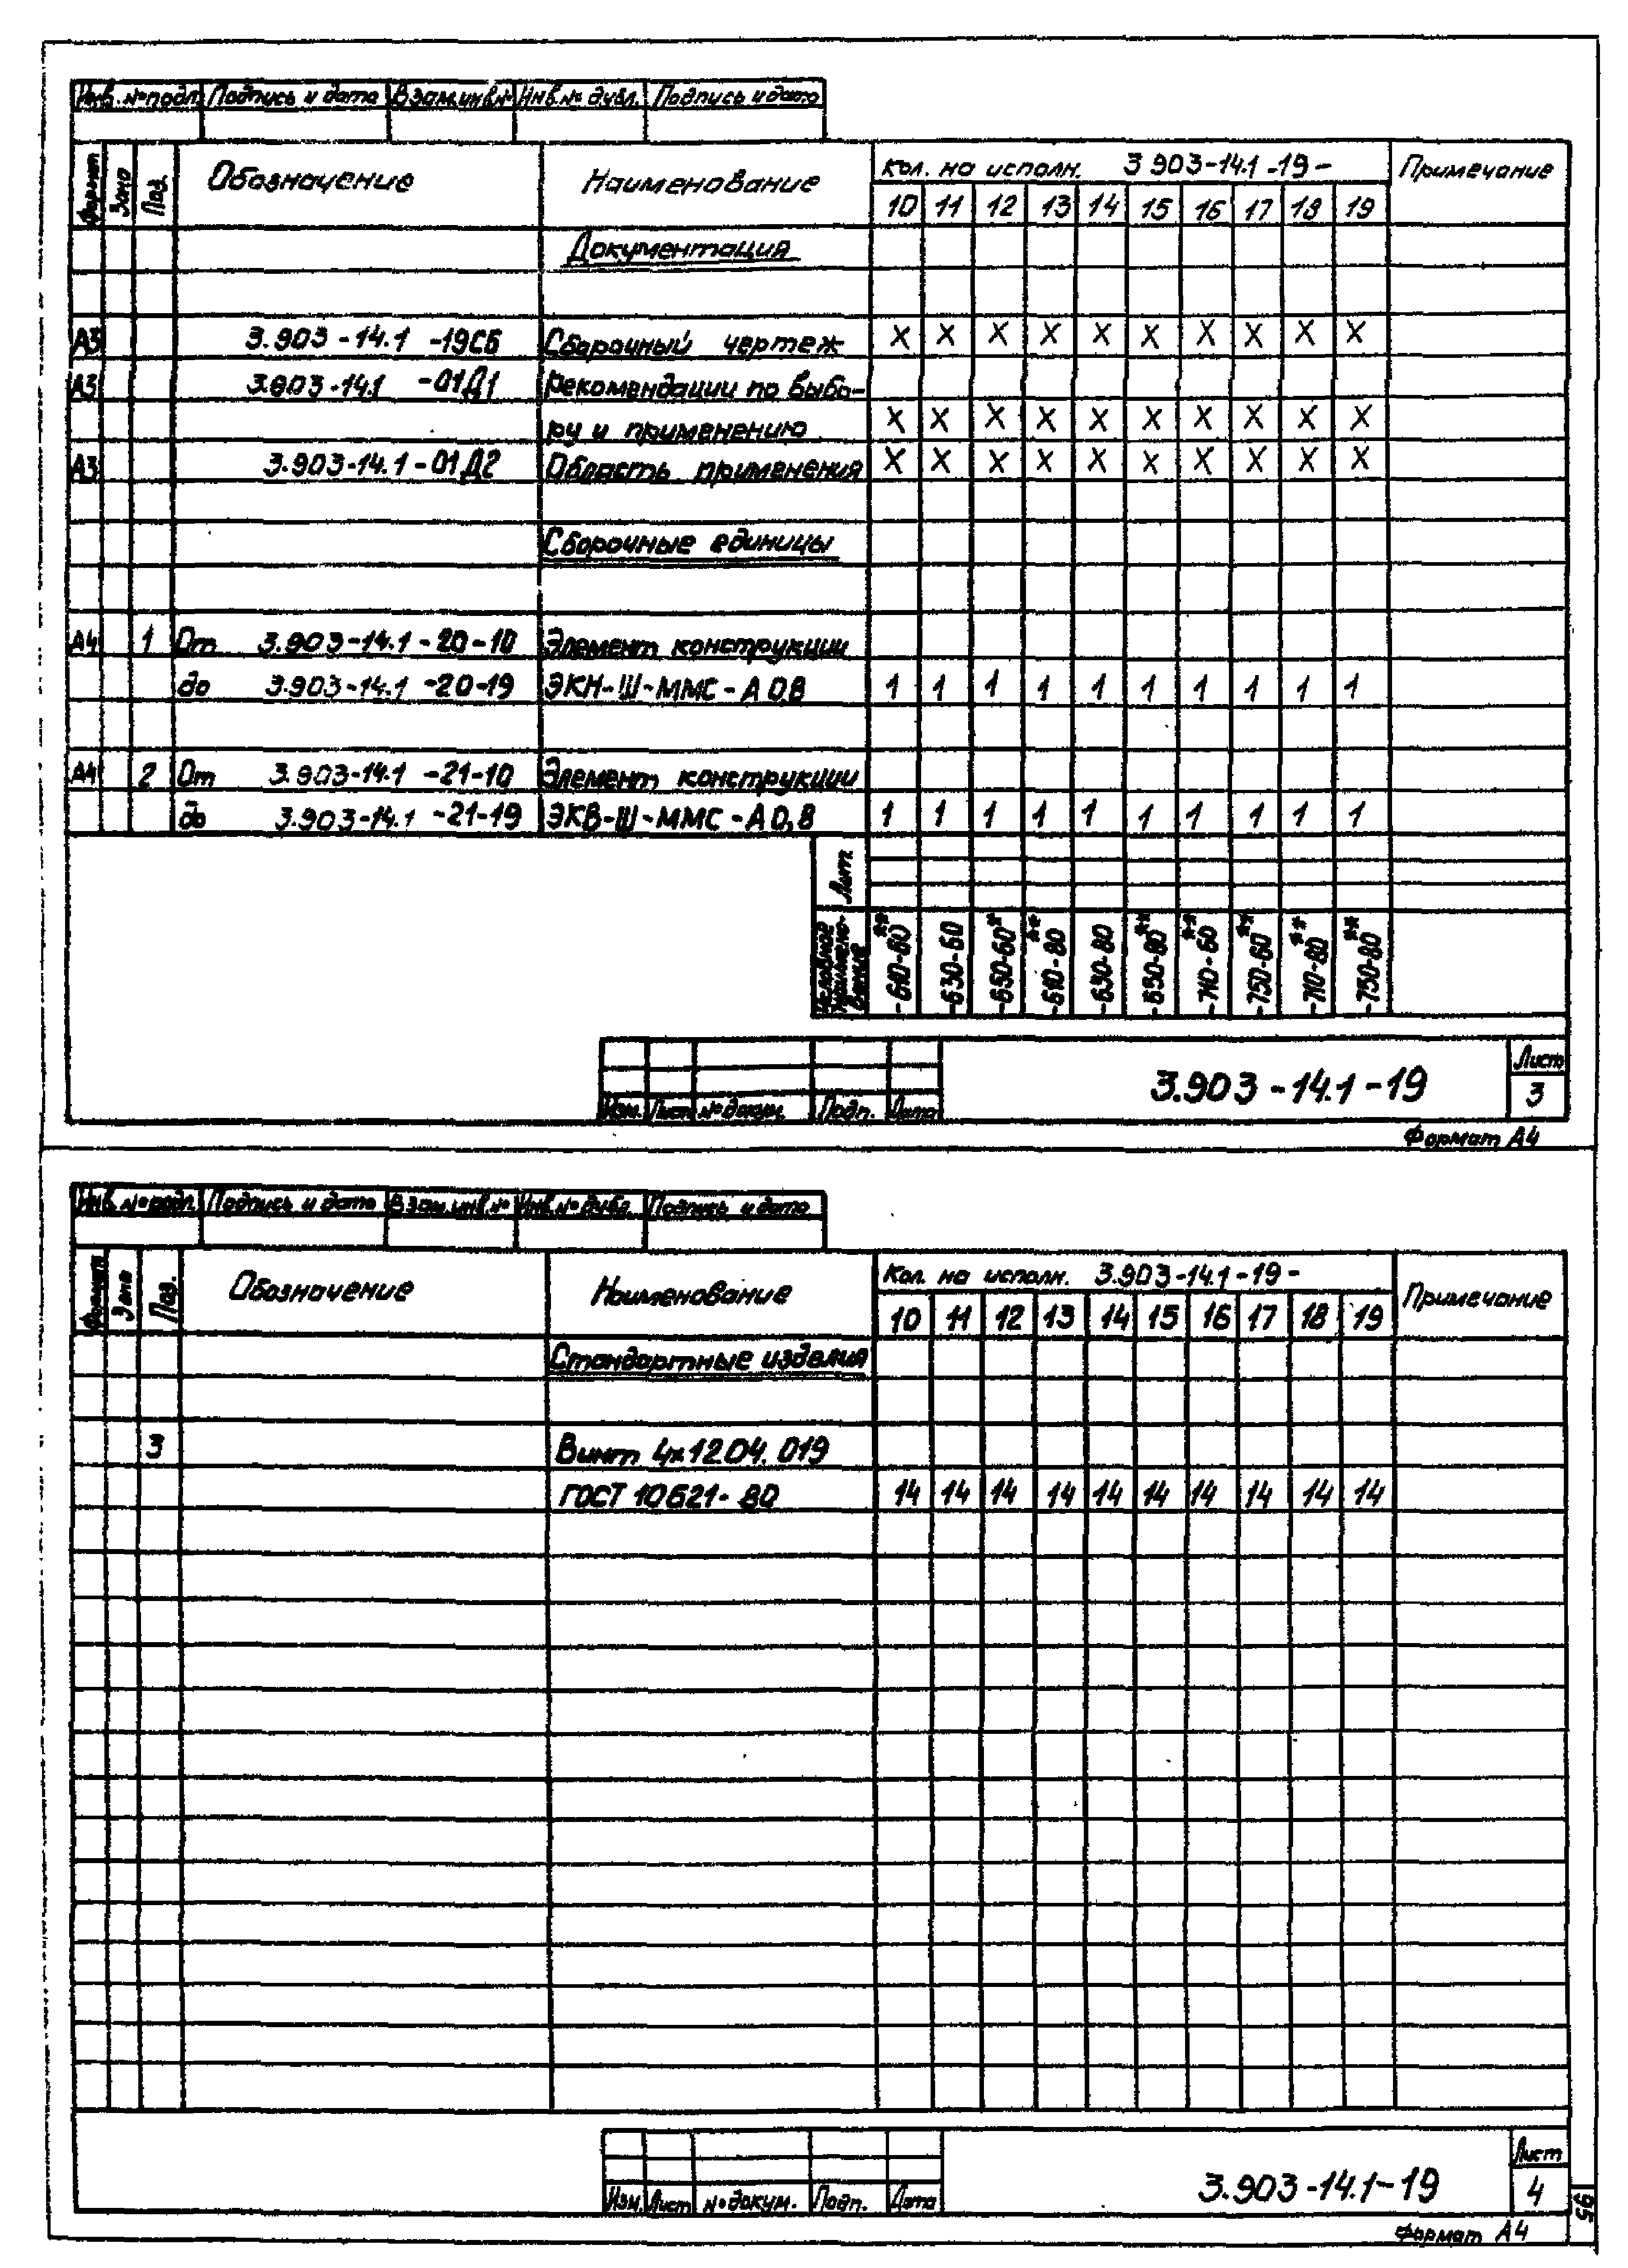 Инв.№ подл. Подпись и дата Взам.инв.№ Инв.№ дубл. Подпись и дата
Формат Зона Поз. Обозначение Наименование Кол. на исполн. 3.903-14.1-19- Примечание
10 11 12 13 14 15 16 17 18 19
Документация
А3 3.903-14.1-19СБ Сборочный чертеж X X X X X X X X X X
А3 3.903-14.1-01Д1 Рекомендации по выбо-
ру и применению X X X X X X X X X X
А3 3.903-14.1-01Д2 Область применения X X X X X X X X X X
Сборочные единицы
А4 1 От 3.903-14.1-20-10 Элемент конструкции
до 3.903-14.1-20-19 ЭКН-Ш-ММС-А 0,8 1 1 1 1 1 1 1 1 1 1
А4 2 От 3.903-14.1-21-10 Элемент конструкции
до 3.903-14.1-21-19 ЭКВ-Ш-ММС-А 0,8 1 1 1 1 1 1 1 1 1 1
Лит.
Условное наимено-вание -610-60** -630-60 -650-60* -610-80** -630-80 -650-80** -710-60** -750-60** -710-80** -750-80**
Изм. Лист № докум. Подп. Дата 3.903-14.1-19 Лист 3
Формат А4
Инв.№ подл. Подпись и дата Взам.инв.№ Инв.№ дубл. Подпись и дата
Формат Зона Поз. Обозначение Наименование Кол. на исполн. 3.903-14.1-19- Примечание
10 11 12 13 14 15 16 17 18 19
Стандартные изделия
3 Винт 4х12.04.019
ГОСТ 10621-80 14 14 14 14 14 14 14 14 14 14
Изм. Лист № докум. Подп. Дата 3.903-14.1-19 Лист 4
Формат А4
95